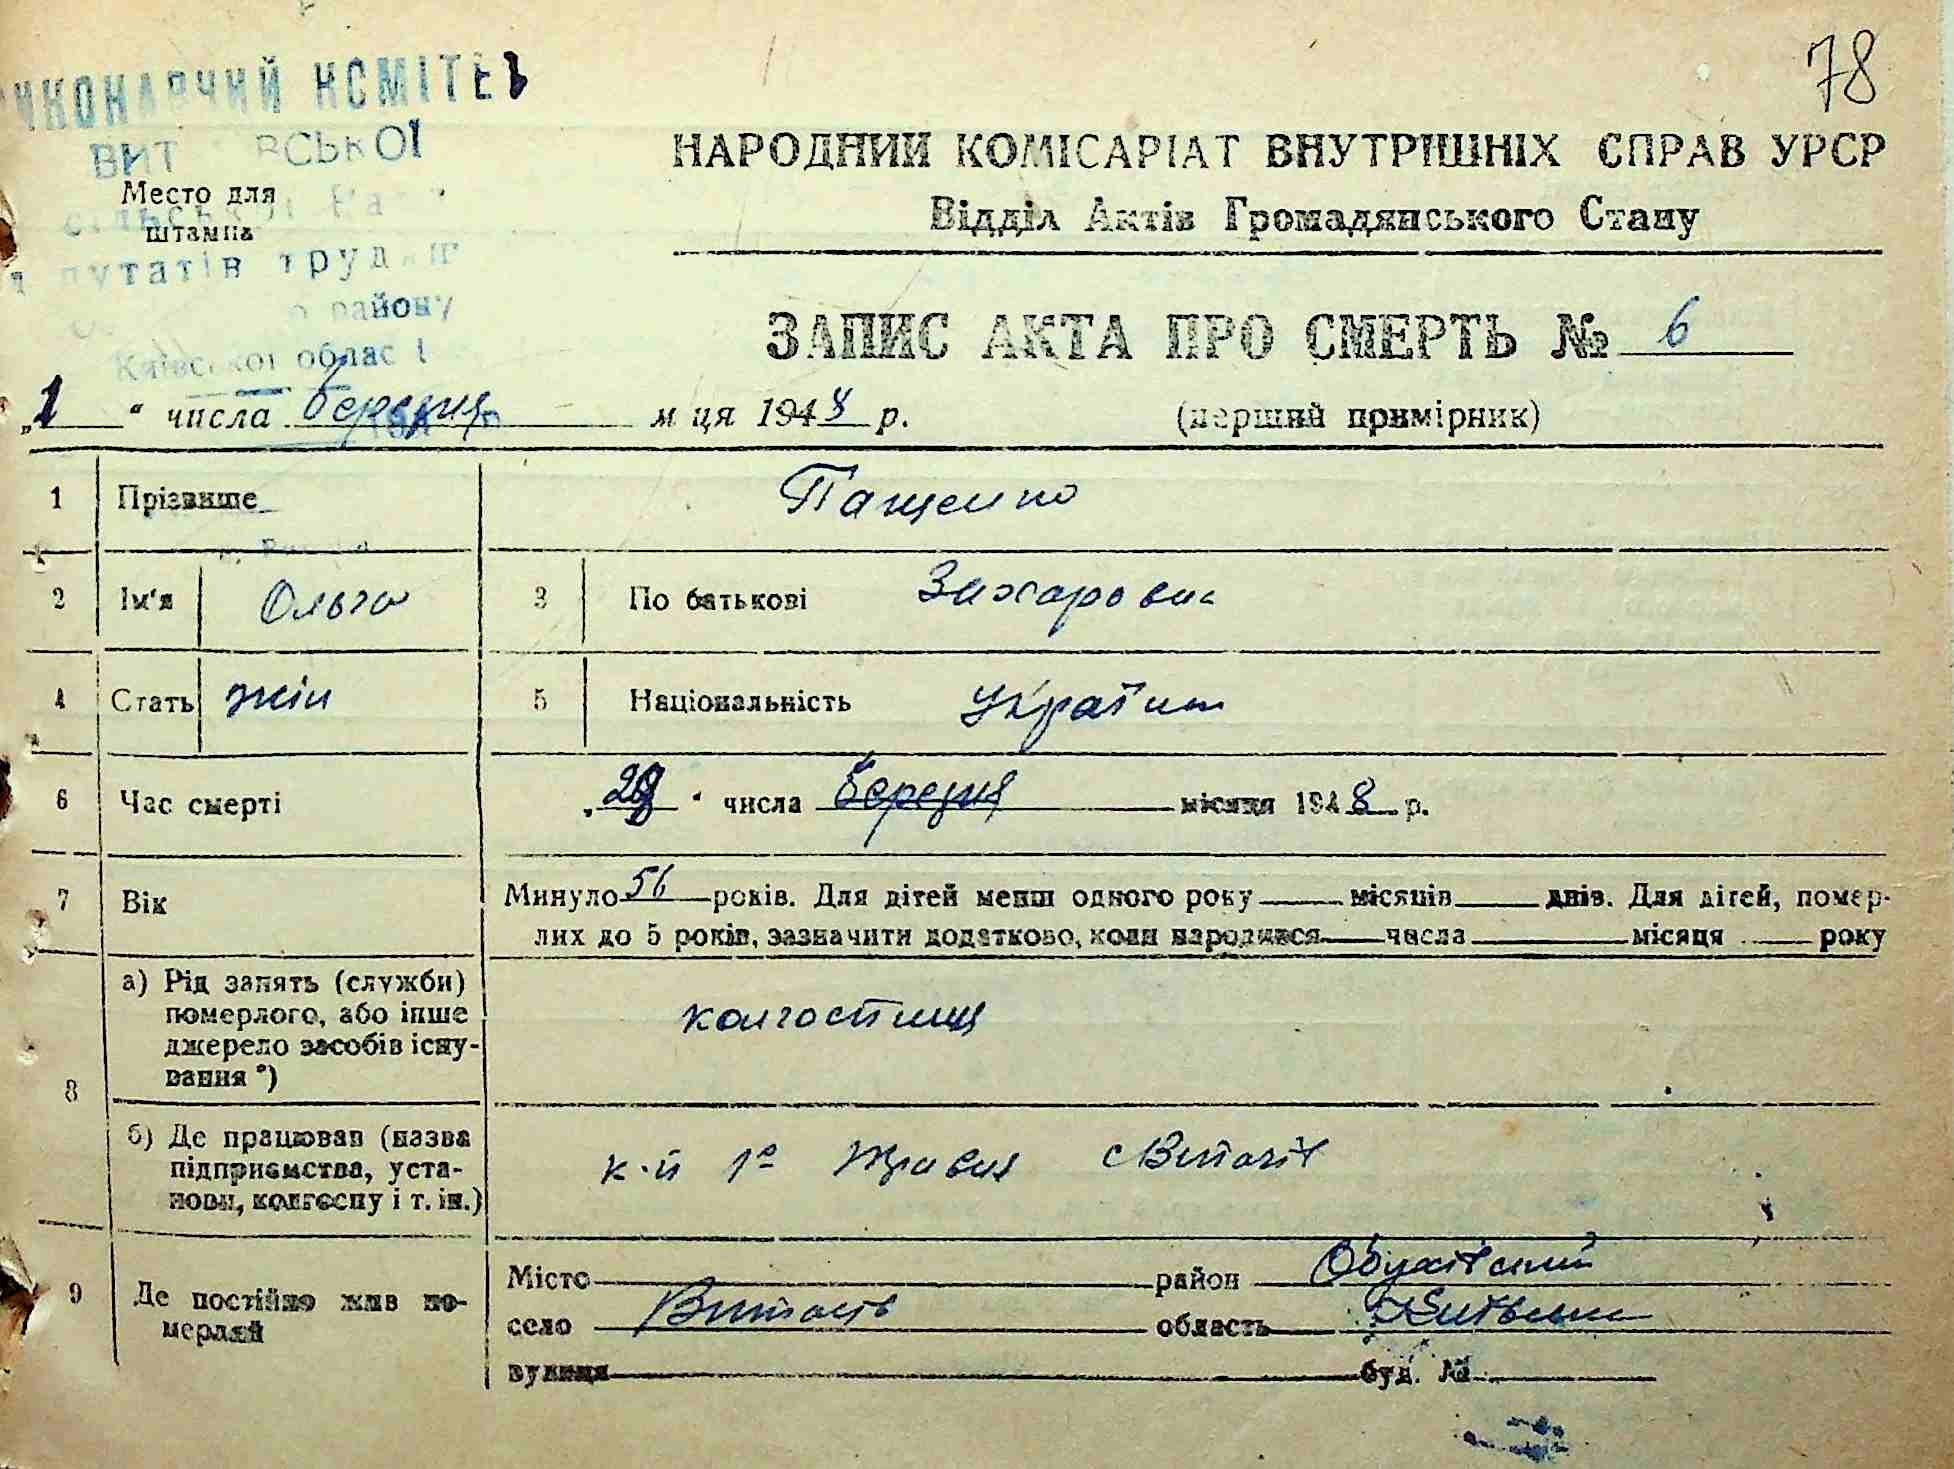 78
ВИКОНАВЧИЙ КОМІТЕТ
НАРОДНИЙ КОМІСАРІАТ ВНУТРІШНІХ СПРАВ УРСР
Место для
штампа
Відділ Актів Громадянського Стану
району
Київської області
ЗАПИС АКТА ПРО СМЕРТЬ № 6
„1" числа березня м ця 1948 р. (перший примірник)
1 Прізвище Пащенко
2 Ім'я Ольга 3 По батькові Захаровна
4 Стать жін 5 Національність Україн
6 Час смерті „ " числа березня місяця 1948 р.
7 Вік Минуло 56 років. Для дітей менш одного року місяців днів. Для дітей, помер-
лих до 5 років, зазначити додатково, коли народився числа місяця року
8 а) Рід занять (служби)
померлого, або інше
джерело засобів існу-
вання *)
колгоспниця
б) Де працював (назва
підприємства, уста-
нови, колгоспу і т. ін.)
к-п 1е Травня с Витачів
9 Де постійно жив по-
мерлий
Місто район Обухівський
село Витачів область Київська
вулиця буд. №